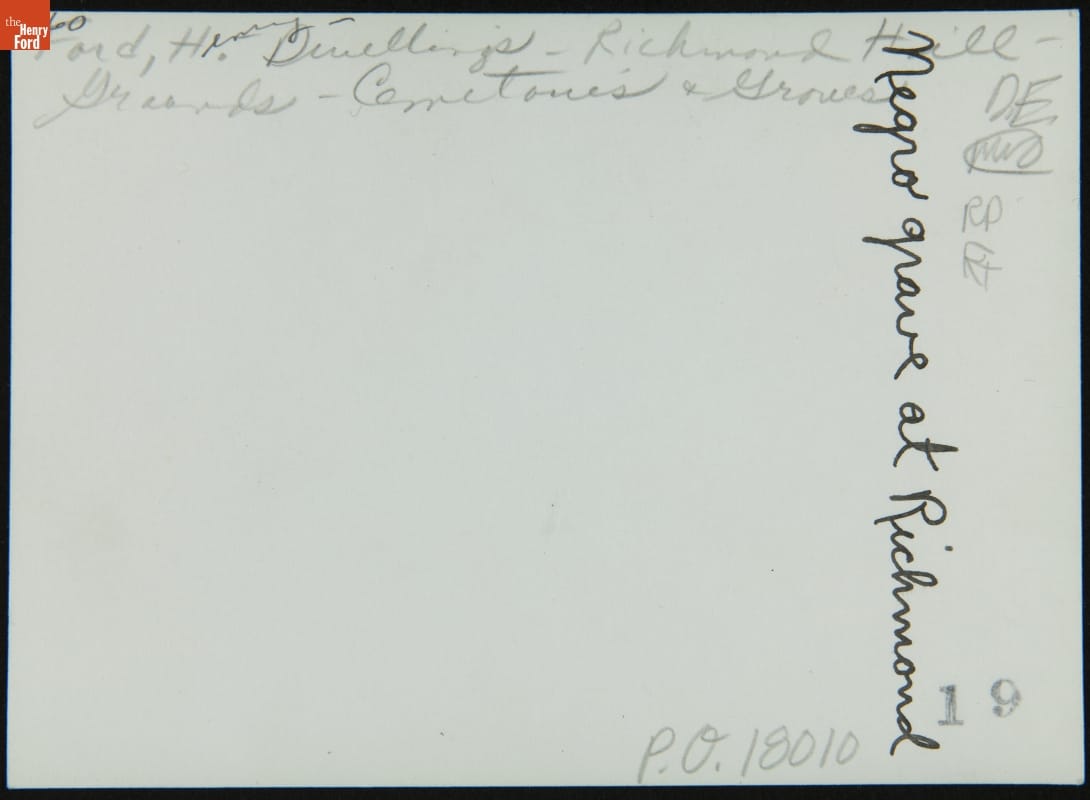 the
Henry
Ford
60
Ford, Henry - Dwellings - Richmond Hill -
Grounds - Cemeteries & Graves
D.E.
RP
Negro grave at Richmond
19
P.O. 18010